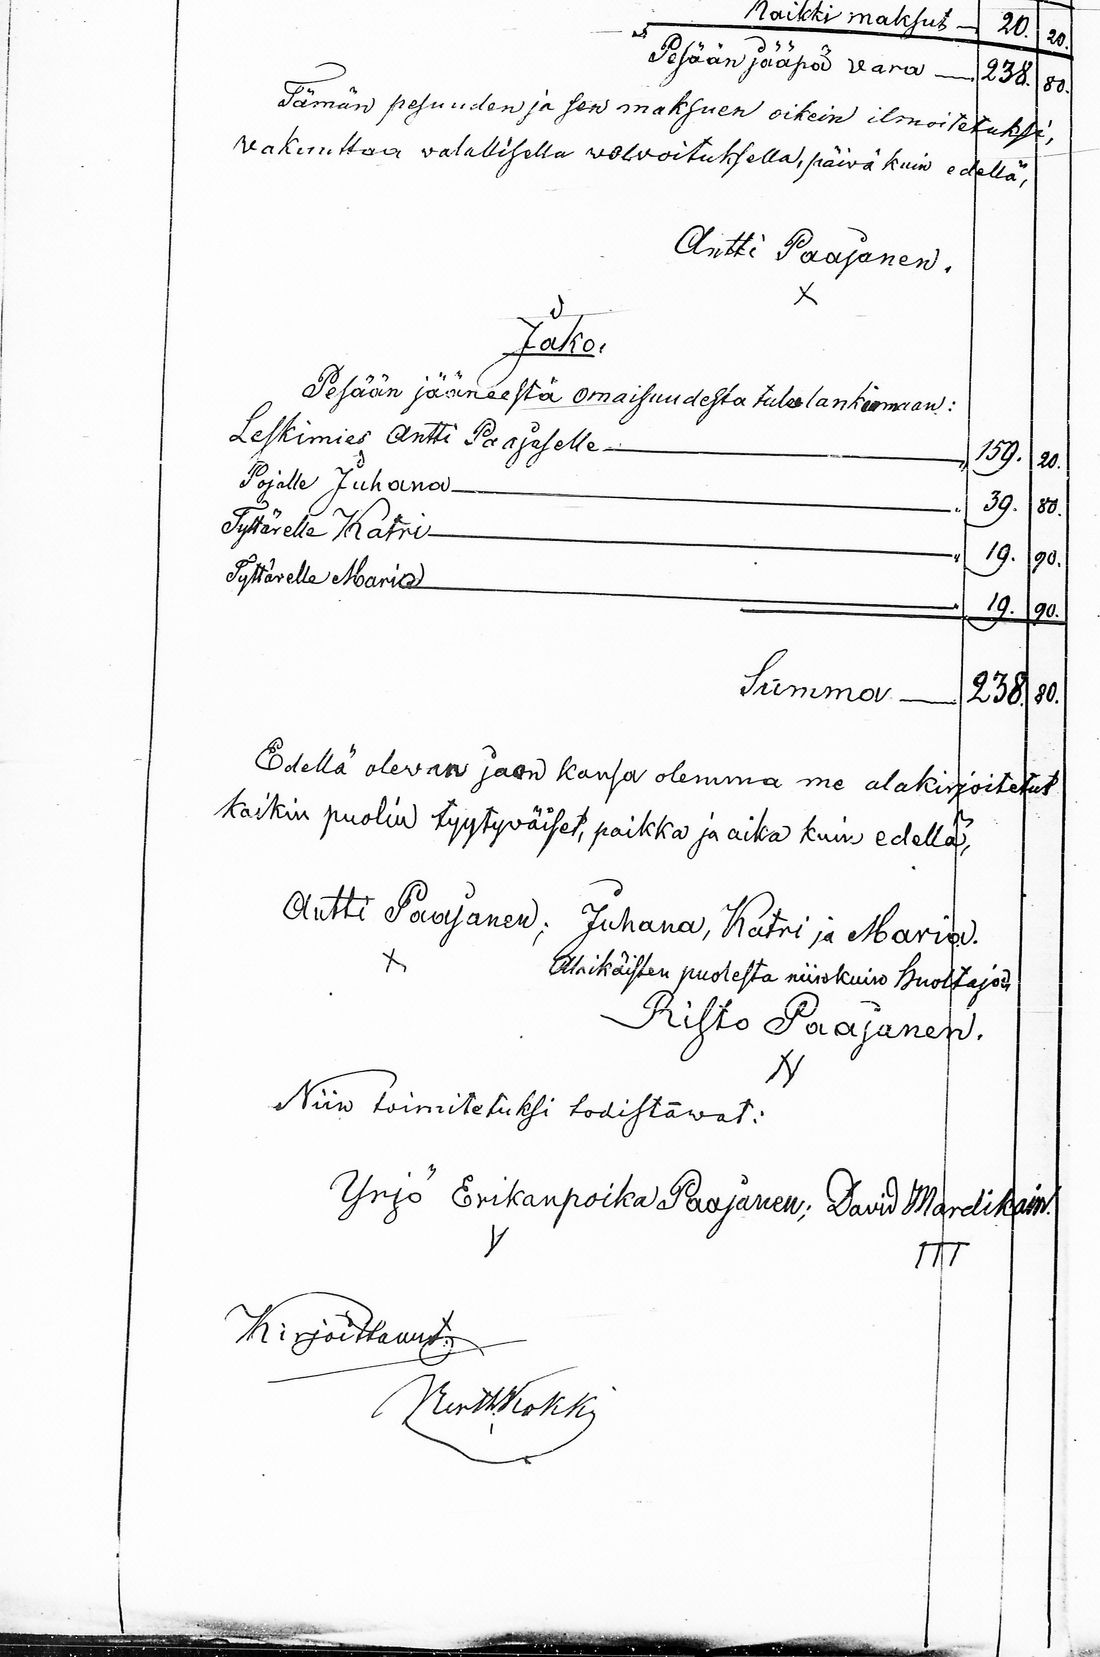 Kaikki maksut — 20. 20.
Pesään jääpä vara — 238. 80.
Tämän pesuuden ja sen maksuen oikein ilmoitetuksi,
vakuuttaa valallisella velvoituksella, päivä kuin edellä,
Antti Paajanen.
X
Jako.
Pesään jääneestä omaisuudesta tulee lankemaan:
Leskimies Antti Paajaselle — „ 159. 20.
Pojalle Juhana — „ 39. 80.
Tyttärelle Katri — „ 19. 90.
Tyttärelle Maria — „ 19. 90.
Summa — 238. 80.
Edellä olevan jaon kansa olemma me alakirjoitetut
kaikin puolin tyytyväiset, paikka ja aika kuin edellä,
Antti Paajanen; Juhana, Katri ja Maria.
X
Alaikäisten puolesta niinkuin huoltaja
Risto Paajanen.
N
Niin toimitetuksi todistavat:
Yrjö Erikanpoika Paajanen; David Mardikain.
Y III
Kirjoittanut:
Kokki